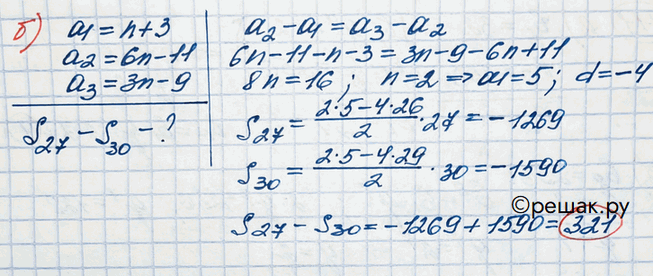 б) a1 = n+3
a2 = 6n-11
a3 = 3n-9
S27 - S30 - ?
a2 - a1 = a3 - a2
6n-11-n-3 = 3n-9-6n+11
8n=16; n=2 => a1=5; d=-4
S27 = (2·5-4·26)/2 · 27 = -1269
S30 = (2·5-4·29)/2 · 30 = -1590
©решак.ру
S27 - S30 = -1269 + 1590 = 321